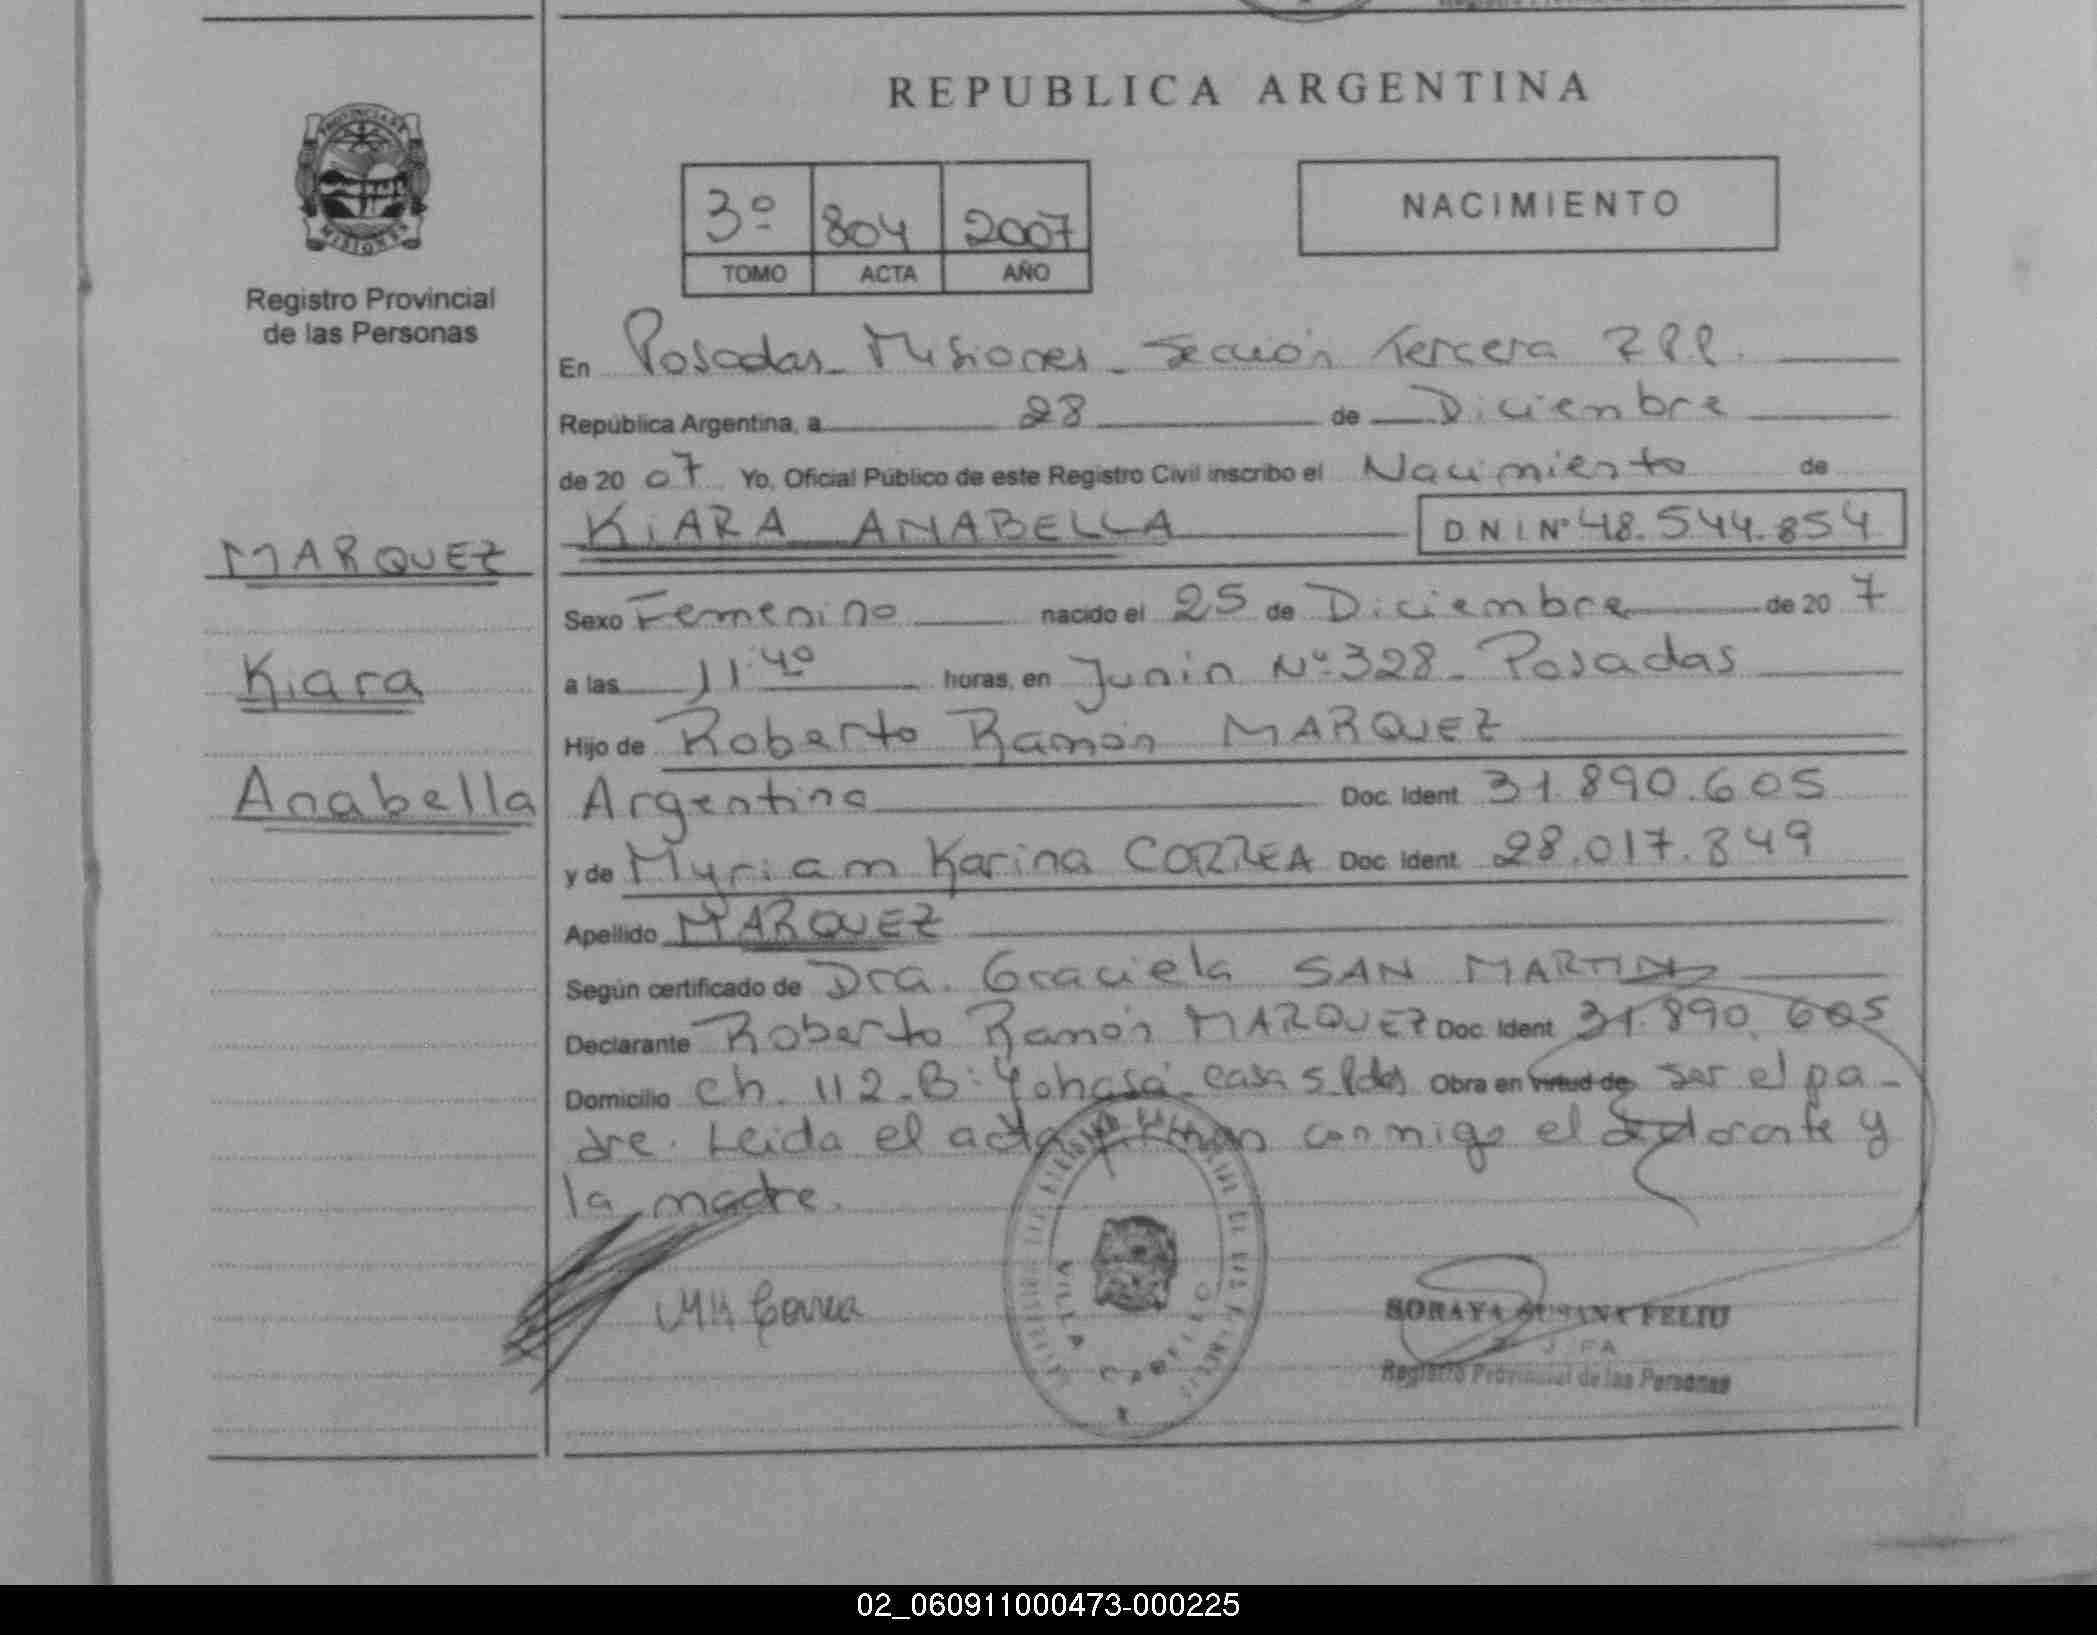 REPUBLICA ARGENTINA
PROVINCIA DE
MISIONES
Registro Provincial
de las Personas
3º 804 2007
TOMO ACTA AÑO
NACIMIENTO
En Posadas - Misiones - Sección Tercera
República Argentina, a 28 de Diciembre
de 20 07 Yo, Oficial Público de este Registro Civil inscribo el Nacimiento de
KIARA ANABELLA D N I Nº 48.544.854
MARQUEZ
Kiara
Anabella
Sexo Femenino nacido el 25 de Diciembre de 20 7
a las 11:40 horas, en Junin Nº 328 - Posadas
Hijo de Roberto Ramón MARQUEZ
Argentino Doc. Ident 31.890.605
y de Myriam Karina CORREA Doc. Ident 28.017.849
Apellido MARQUEZ
Según certificado de Dra. Graciela SAN MARTIN
Declarante Roberto Ramón MARQUEZ Doc. Ident 31.890.605
Domicilio Ch. 112 - B: casa 5 Pdas Obra en virtud de ser el pa-
dre. Leida el acta firman conmigo el declarante y
la madre.
Correa
VILLA CABELLO
SORAYA SUSANA FELIU
Registro Provincial de las Personas
02_060911000473-000225